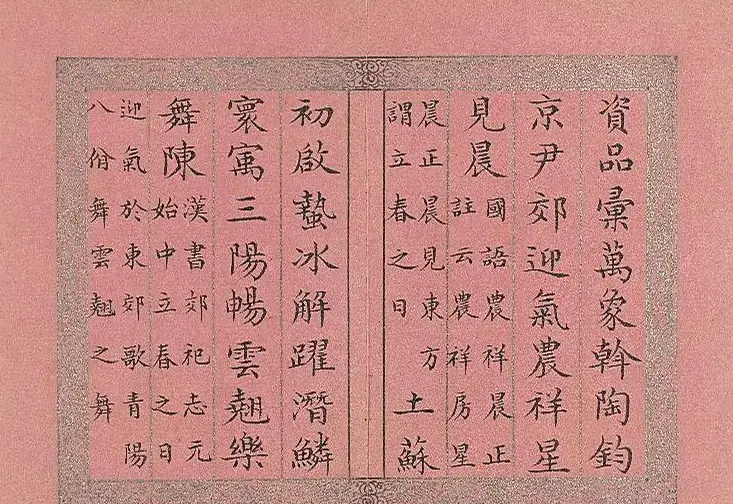 資品彙萬象斡陶鈞
京尹郊迎氣農祥星
見晨
國語農祥晨正
註云農祥房星
晨正晨見東方
謂立春之日
土蘇
初啟蟄冰解躍潛鱗
寰寓三陽暢雲翹樂
舞陳
漢書郊祀志元
始中立春之日
迎氣於東郊歌青陽
八佾舞雲翹之舞